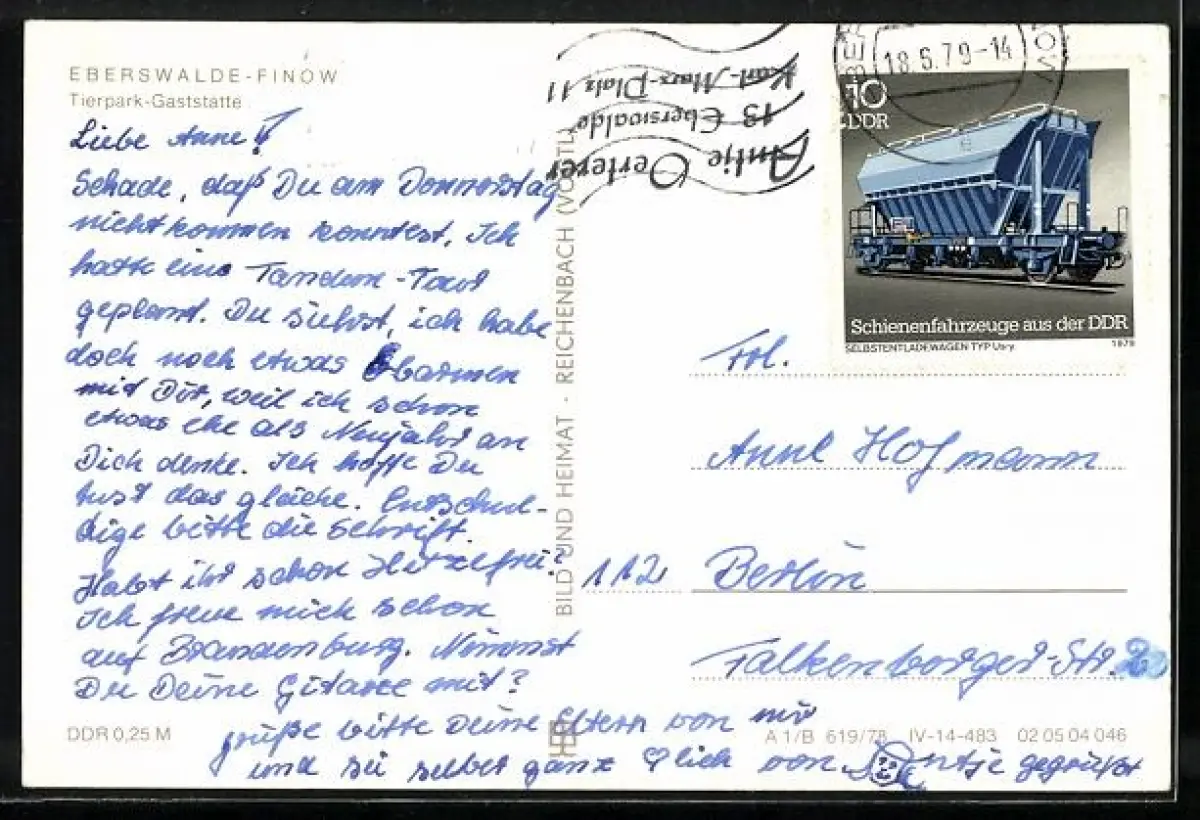 EBERSWALDE-FINOW
Tierpark-Gaststätte
Liebe Anne!
Schade, daß Du am Donnerstag
nicht kommen konntest. Ich
hatte eine Tandem-Tour
geplant. Du siehst, ich habe
doch noch etwas Erbarmen
mit Dir, weil ich schon
etwas ehe als Neujahr an
Dich denke. Ich hoffe Du
tust das gleiche. Entschul-
dige bitte die Schrift.
Habt ihr schon Hitzefrei?
Ich freue mich schon
auf Brandenburg. Nimmst
Du Deine Gitarre mit?
grüße bitte Deine Eltern von mir
und sei selber ganz ♡lich von Antje gegrüßt
DDR 0,25 M
BILD UND HEIMAT · REICHENBACH (VOGTL)
Antje Oerterer
13 Eberswalde
Karl-Marx-Platz 11
18.6.79-14
10
DDR
Schienenfahrzeuge aus der DDR
SELBSTENTLADEWAGEN TYP Us-y.
1979
Frl.
Anne Hofmann
112 Berlin
Falkenberger-Str.
A 1/B 619/78 IV-14-483 02 05 04 046